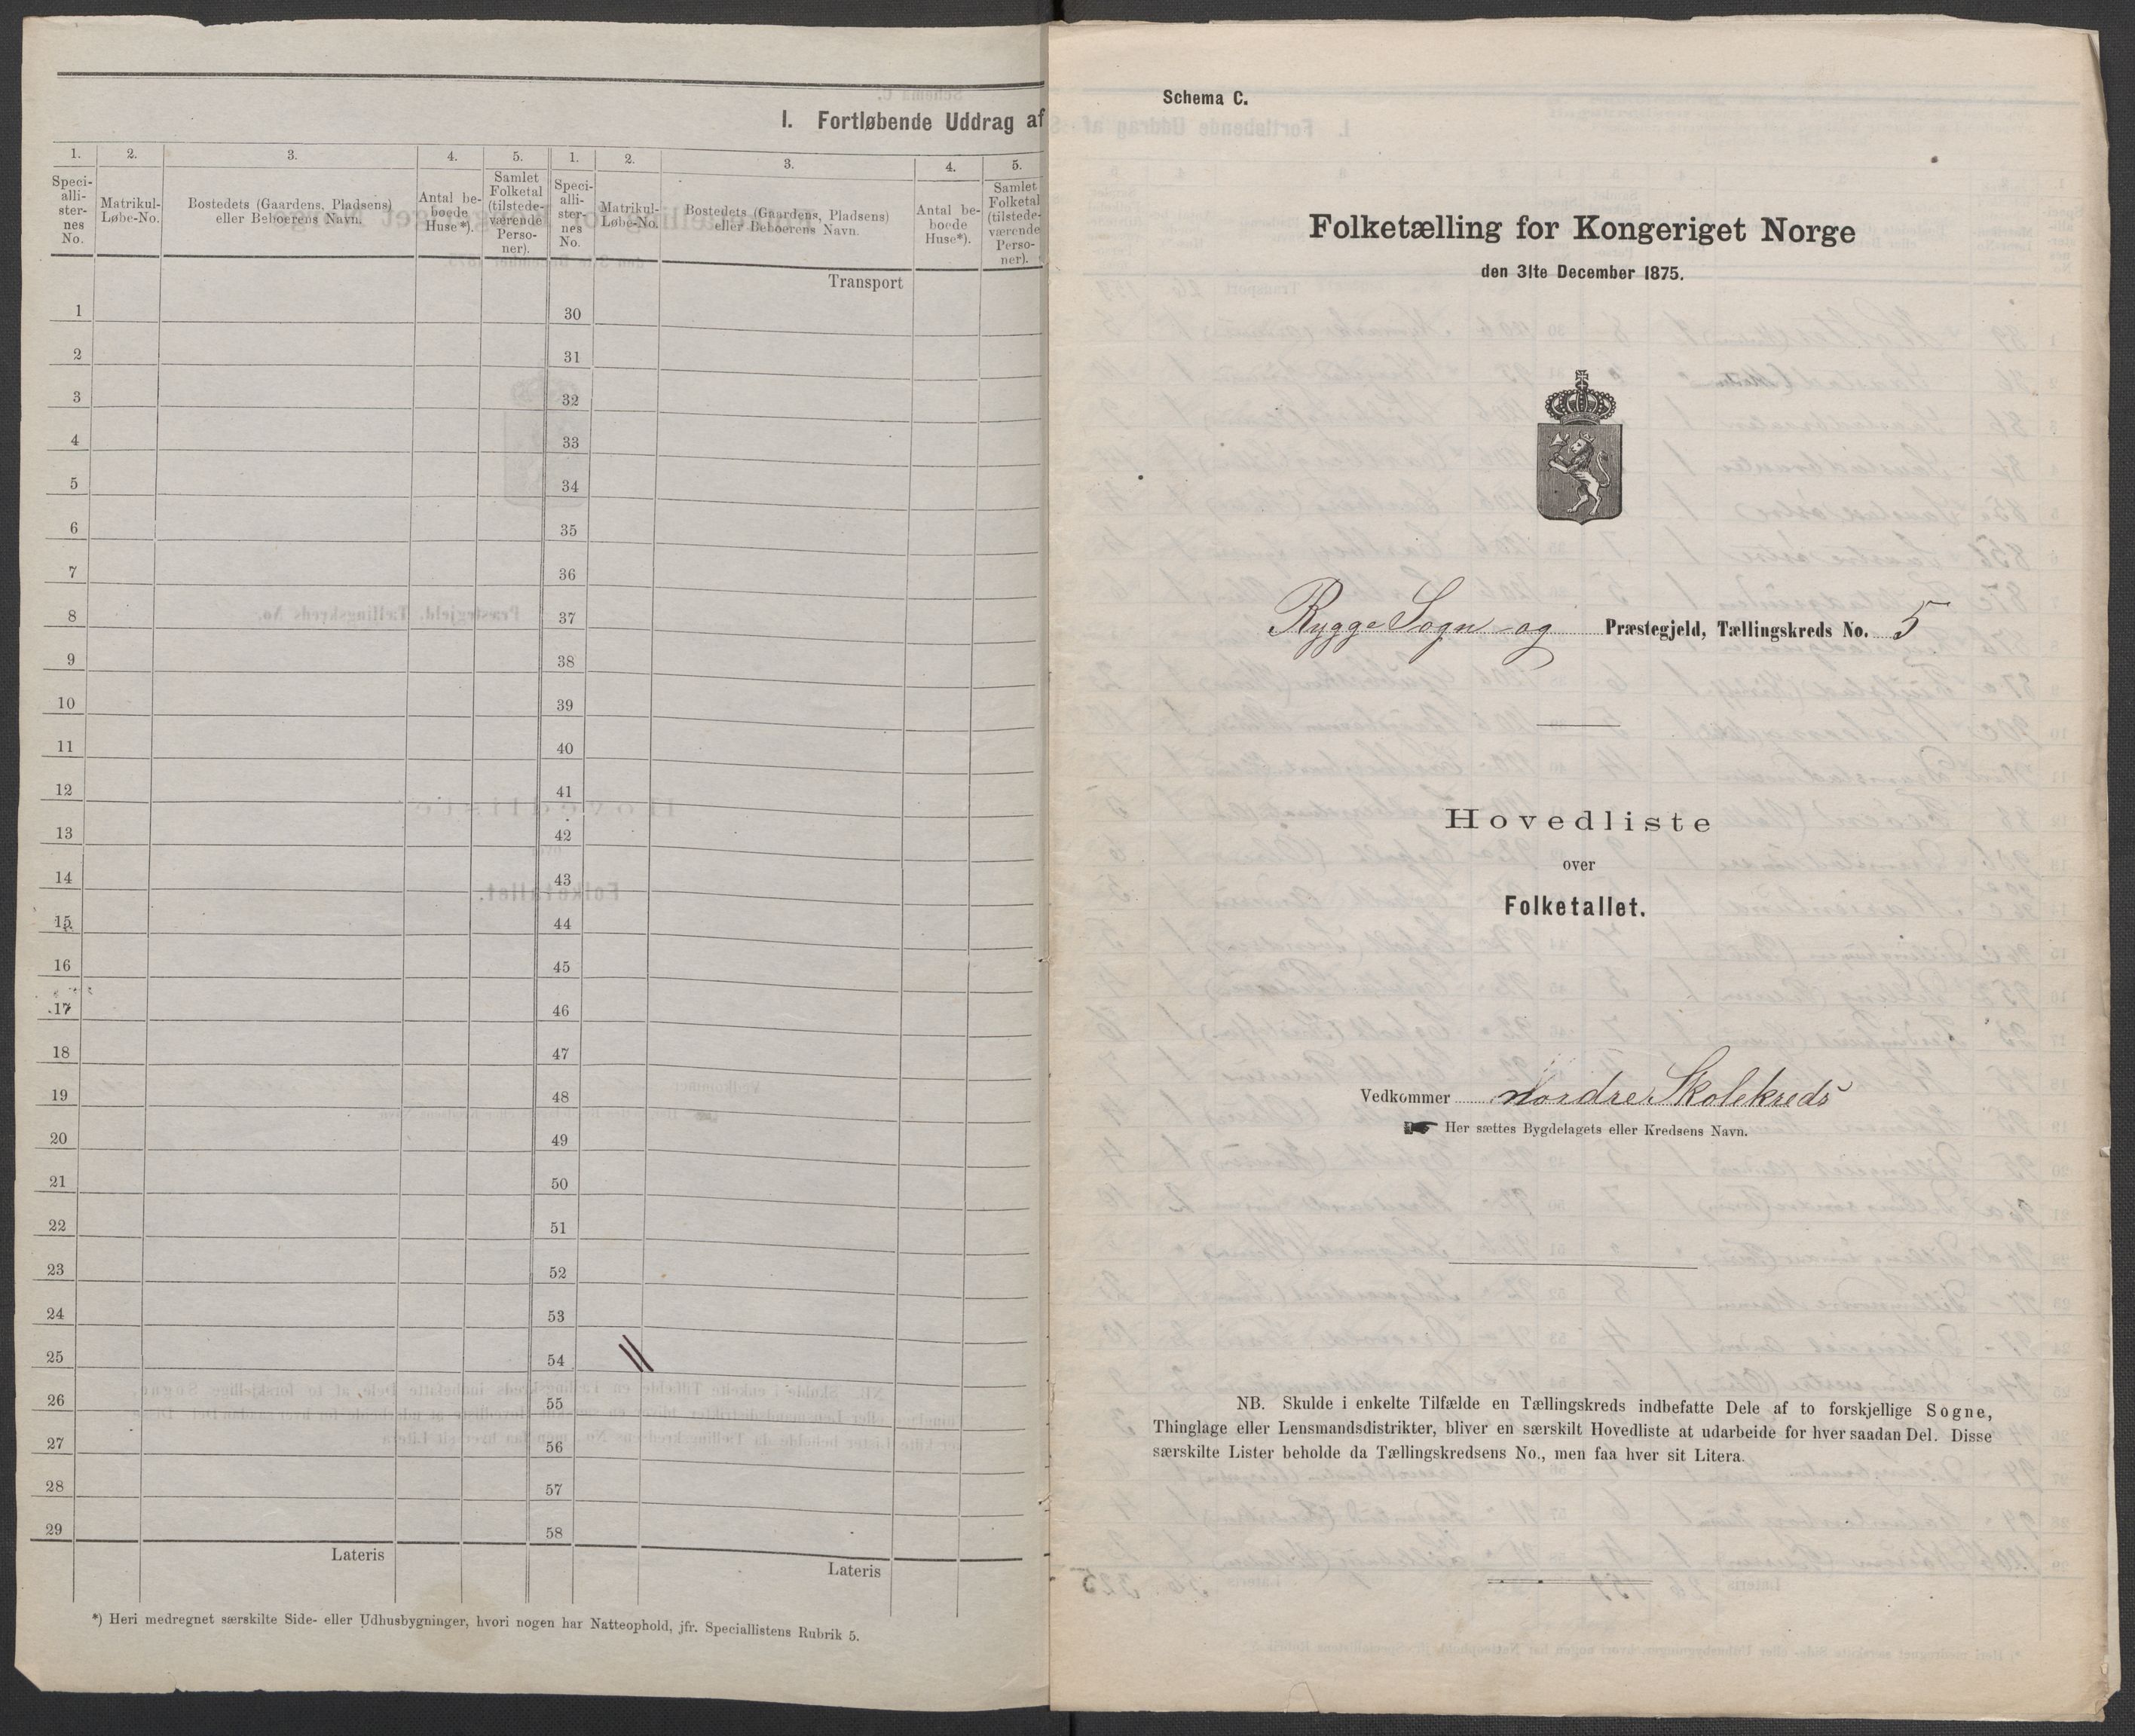 I. Fortløbende Uddrag af
1. 2. 3. 4. 5. 1. 2. 3. 4. 5.
Speci-
alli-
ster-
nes
No.
Matrikul-
Løbe-No.
Bostedets (Gaardens, Pladsens)
eller Beboerens Navn.
Antal be-
boede
Huse*).
Samlet
Folketal
(tilstede-
værende
Perso-
ner).
Speci-
alli-
ster-
nes
No.
Matrikul-
Løbe-No.
Bostedets (Gaardens, Pladsens)
eller Beboerens Navn.
Antal be-
boede
Huse*).
Samlet
Folketal
(tilstede-
værende
Perso-
ner).
Transport
1 30
2 31
3 32
4 33
5 34
6 35
7 36
8 37
9 38
10 39
11 40
12 41
13 42
14 43
15 44
16 45
17 46
18 47
19 48
20 49
21 50
22 51
23 52
24 53
25 54
26 55
27 56
28 57
29 58
Lateris Lateris
*) Heri medregnet særskilte Side- eller Udhusbygninger, hvori nogen har Natteophold, jfr. Speciallistens Rubrik 5.
Schema C.
Folketælling for Kongeriget Norge
den 31te December 1875.
Rygge Sogn og Præstegjeld, Tællingskreds No. 5
Hovedliste
over
Folketallet.
Vedkommer Nordre Skolekreds
Her sættes Bygdelagets eller Kredsens Navn.
NB. Skulde i enkelte Tilfælde en Tællingskreds indbefatte Dele af to forskjellige Sogne,
Thinglage eller Lensmandsdistrikter, bliver en særskilt Hovedliste at udarbeide for hver saadan Del. Disse
særskilte Lister beholde da Tællingskredsens No., men faa hver sit Litera.